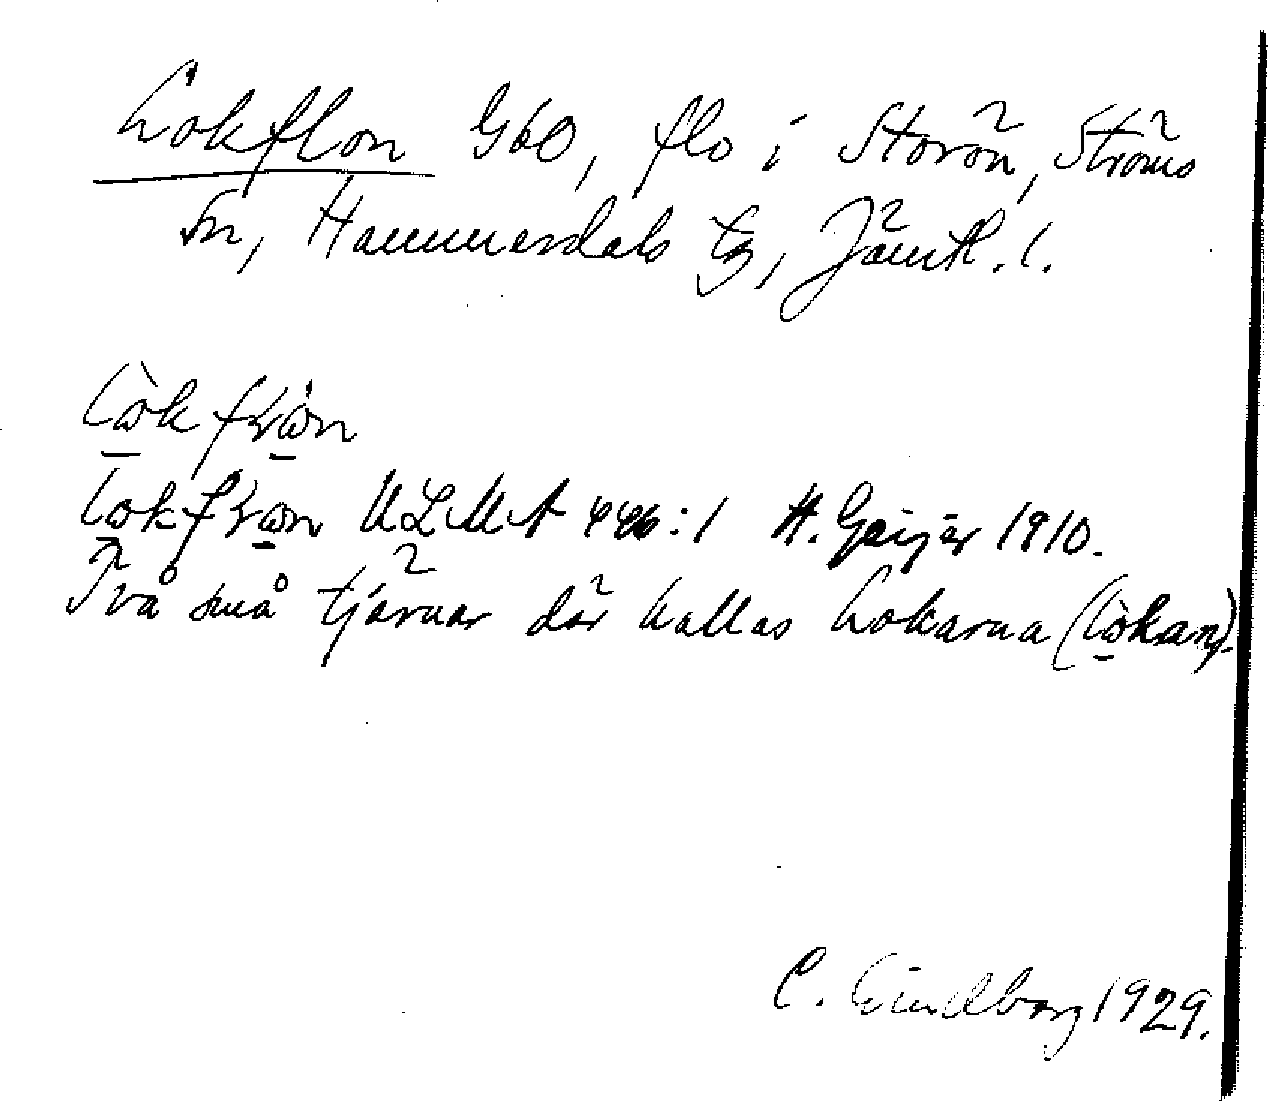 Lokflon G60, flo i Storön, Ströms
sn, Hammerdals tg, Jämtl. l.
lòkfłòn
lokfłon ULMA 446:1 H. Geijer 1910.
Två små tjärnar där kallas Lokarna (lòkan).
C. Lindberg 1929.